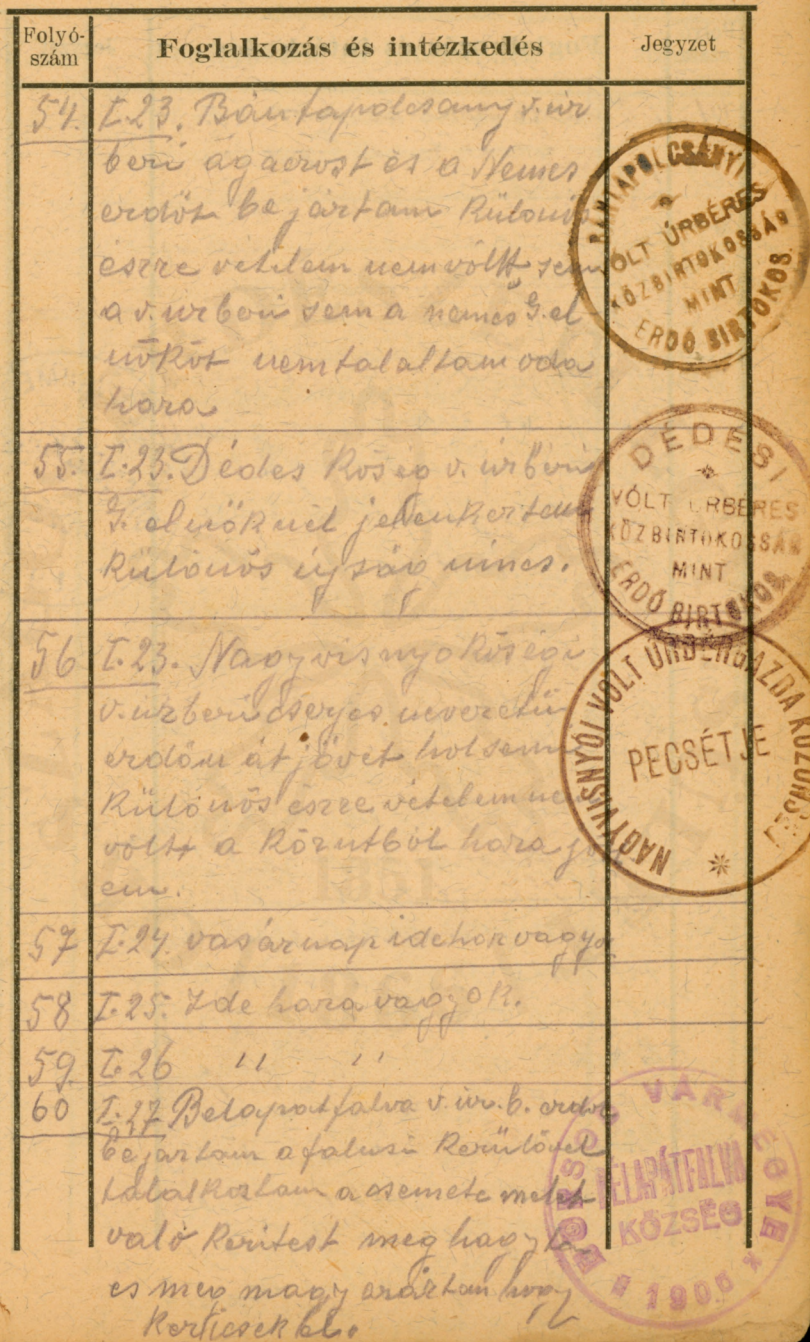 Folyó-
szám
Foglalkozás és intézkedés
Jegyzet
54. I.23. Bántapolcsany v. úr
beri ágacrost és a Nemes
erdőt be jártam Különös
észre vételem nem vólt sem
a v. urberi sem a nemes G. el
nököt nem talaltam oda
hara
BÁNTAPOLCSÁNYI
VÓLT ÚRBÉRES
KÖZBIRTOKOSSÁG
MINT
ERDŐ BIRTOKOS.
55. I.23. Dédes Kőség v. úrberi
G. elnöknél jelenkertem
Különös újság nincs.
DÉDESI
VÓLT ÚRBÉRES
KÖZBIRTOKOSSÁG
MINT
ERDŐ BIRTOKOS
56 I.23. Nagyvisnyo Kőségi
v. urberi cserjes neveretü
erdőn át jövet holsemi
Különös észre vételem nem
vólt a Kőrutból hara jöt
em.
NAGYVISNYÓI VOLT ÚRBÉRGAZDA KÖZÖNSÉG
PECSÉTJE
57 I.24. vasárnap idehon vagyo
58 I.25. Ide hara vagyok.
59. I.26 " "
60 I.27 Belapatfalva v. úr. b. erdőt
bejartam a falusi Kerülővel
talalkoztam a csemete melet
való Keritest meg hagyta
es meg magy aráztam hogy
Kericsek be.
BORSOD VÁRMEGYE
BÉLAPÁTFALVA
KÖZSÉG
1906